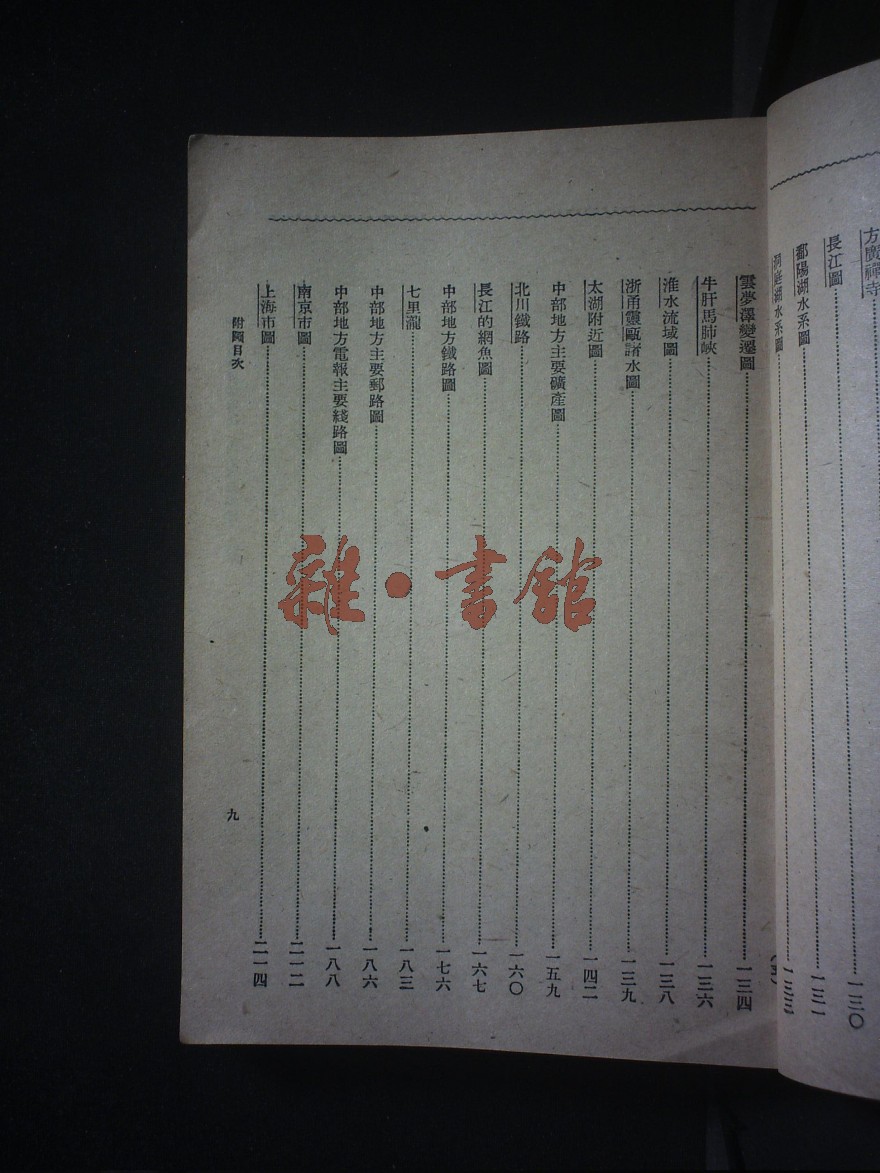 方廣禪寺……一三〇
長江圖……一三一
鄱陽湖水系圖……一三二
洞庭湖水系圖……一三三
雲夢澤變遷圖……一三四
牛肝馬肺峽……一三六
淮水流域圖……一三八
浙甬靈甌諸水圖……一三九
太湖附近圖……一四二
中部地方主要礦產圖……一五九
北川鐵路……一六〇
長江的網魚圖……一六七
中部地方鐵路圖……一七六
七里瀧……一八三
中部地方主要郵路圖……一八六
中部地方電報主要綫路圖……一八八
南京市圖……二一二
上海市圖……二一四
附圖目次
九
雜·書館